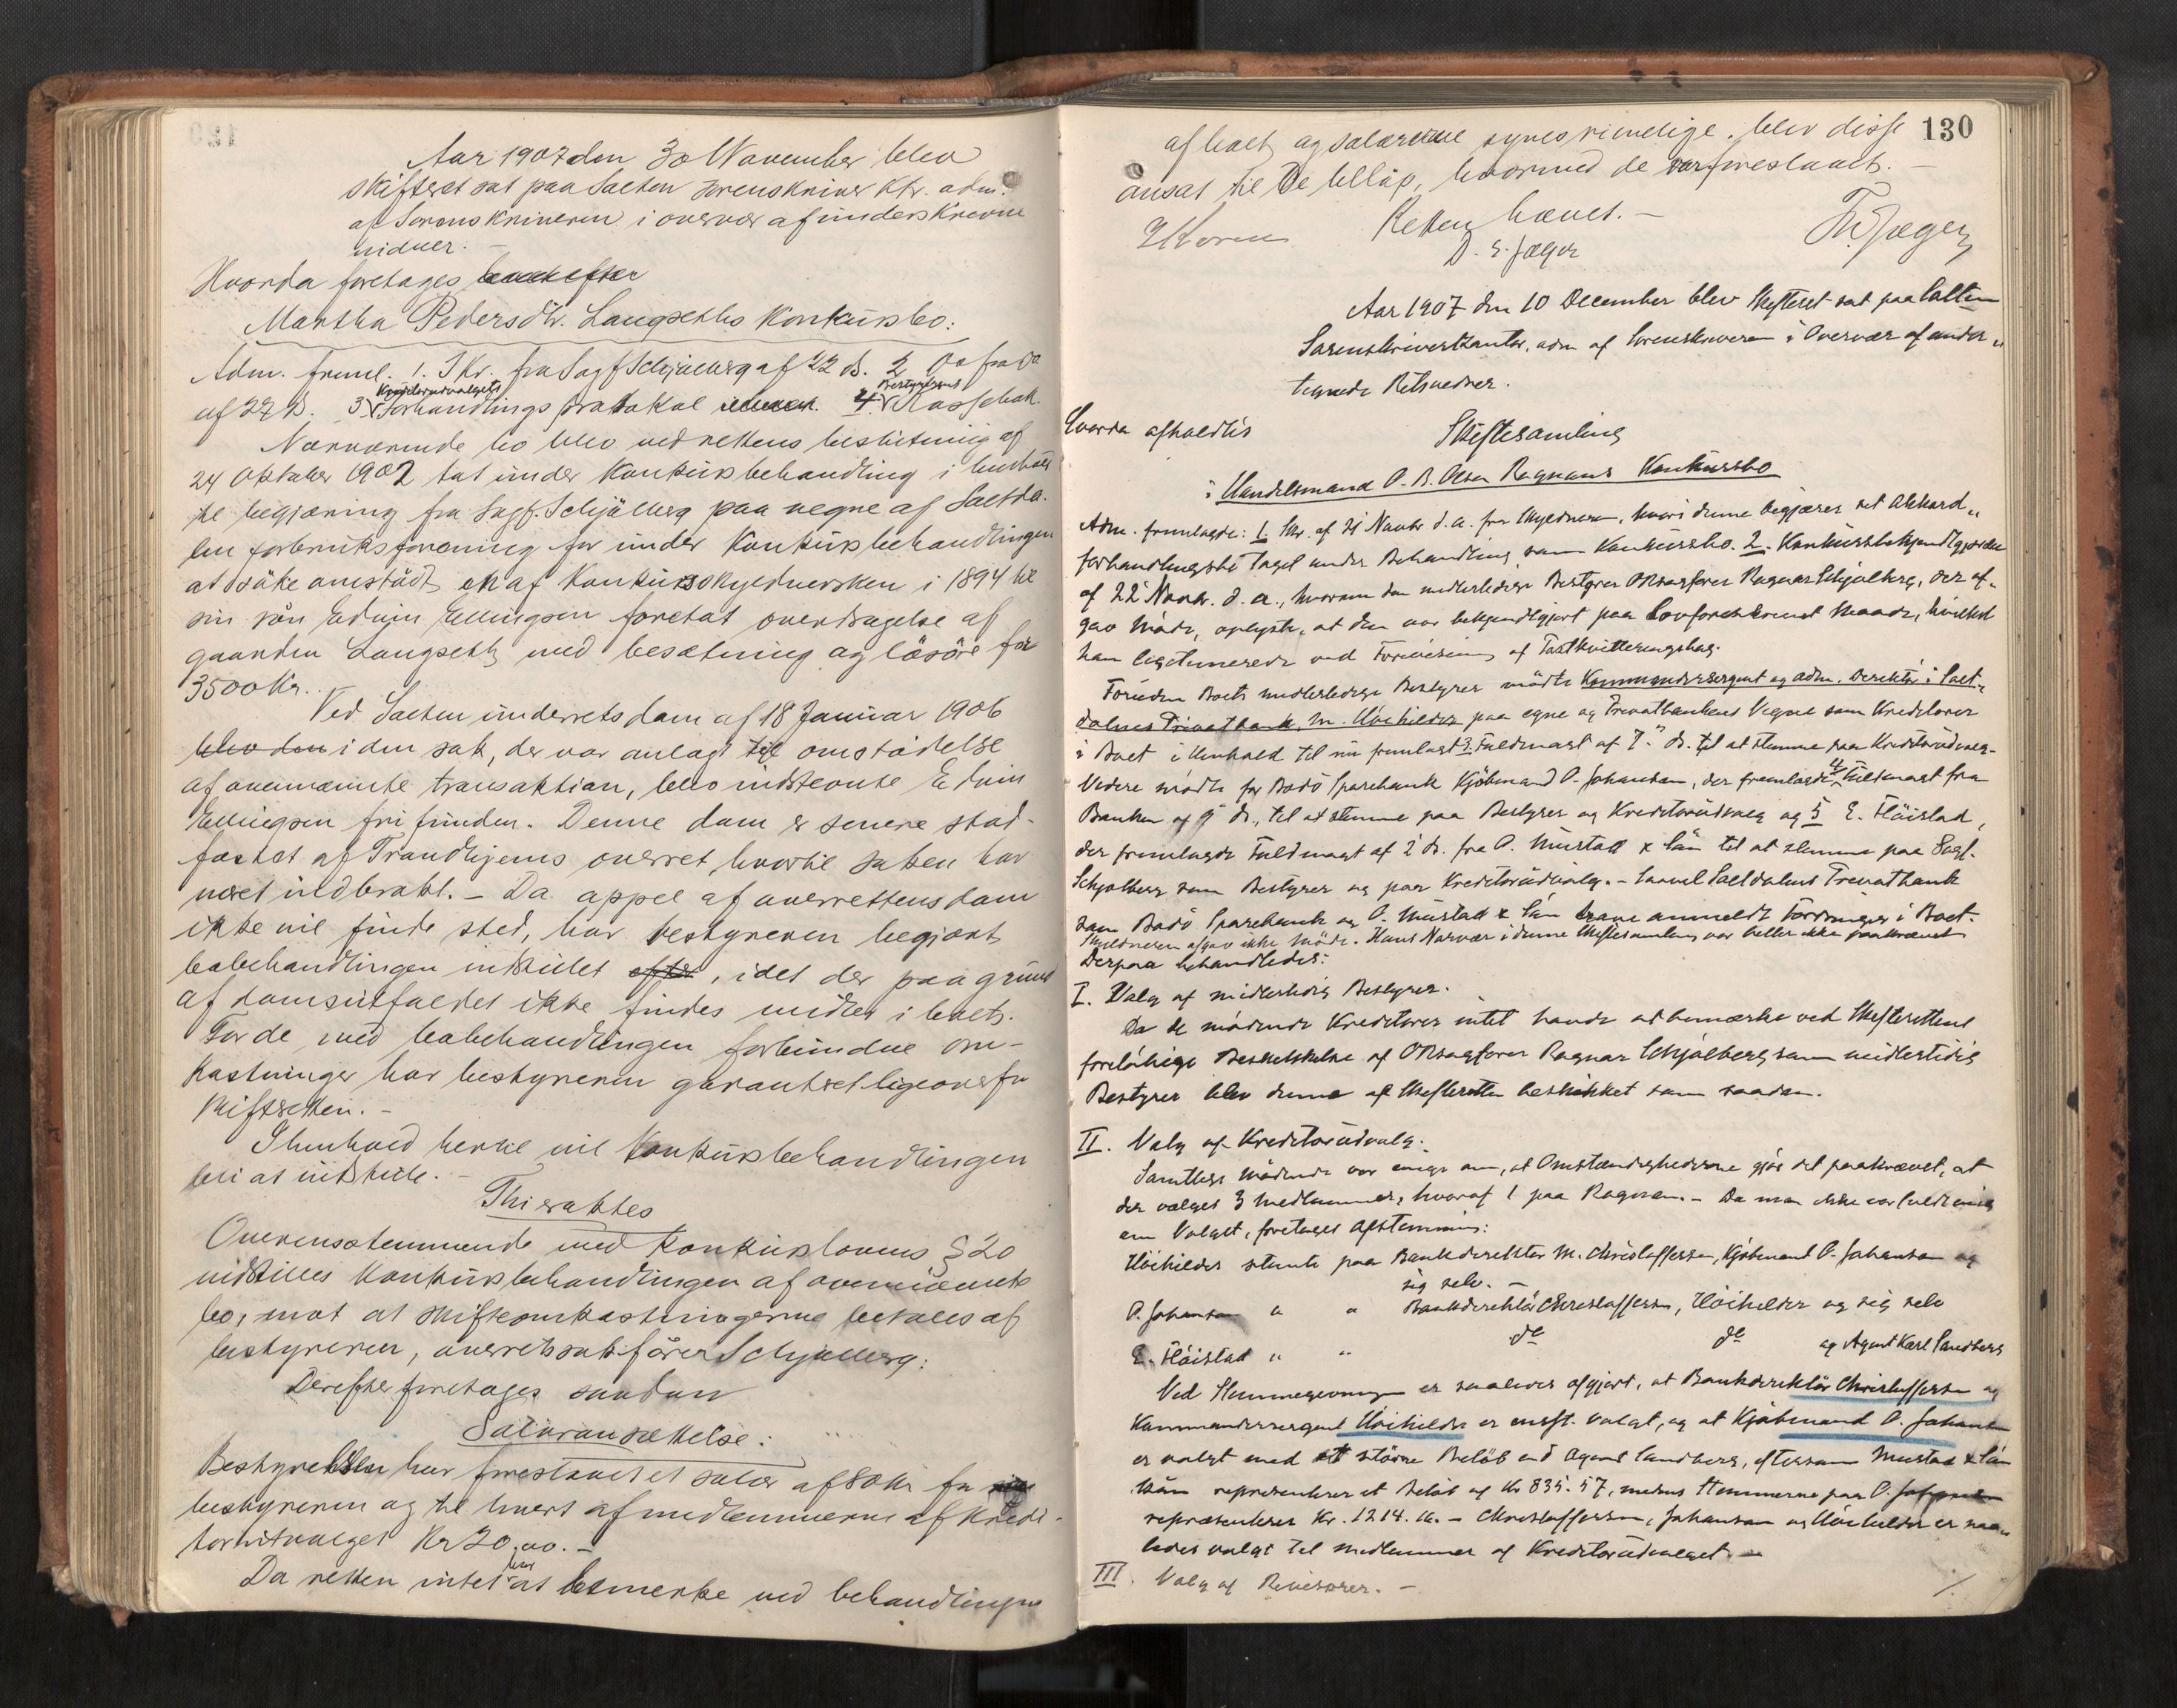 Aar 1907 den 30 November blev
skifteret sat paa Salten sorenskriver Ktr. adm.
af Sorenskriveren i overvær af underskrevne
vidner. –
Hvorda foretages
Martha Pedersdtr. Langseths Konkursbo:
Adm. freml. 1. Skr. fra Sagf Schjælberg af 22 ds. 2 Do fra Do
Kreditorudvalgets Bestyrerens
af 27 ds. 3 Forhandlingsprotokol 4 Kassebok.
Nærværende bo blev ved rettens beslutning af
24 Oktober 1902 tat under Konkursbehandling i henhold
til begjæring fra Sagf. Schjælberg paa vegne af Saltda-
len forbruksforening for under Konkursbehandlingen
at søke omstødt en af Konkursskyldnersken i 1894 til
sin søn Edvin Ellingsen foretat overdragelse af
gaarden Langseth med besætning og løsøre for
3500 Kr.
Ved Salten underretsdom af 18 Januar 1906
blev den i den sak, der var anlagt til omstødelse
af ovennævnte transaktion, blev indstevnte Edvin
Ellingsen frifunden. Denne dom er senere stad-
fæstet af Trondhjems overret, hvortil saken har
været indbrakt. – Da appel af overrettens dom
ikke vil finde sted, har bestyreren begjært
bobehandlingen indstillet efter, idet der paa grund
af domsutfaldet ikke findes midler i boet.
For de med bobehandlingen forbundne om-
kostninger har bestyreren garantert ligeoverfor
skifteretten. –
I henhold hertil vil Konkursbehandlingen
bli at indstille. –
Thi eraktes
Overensstemmende med Konkurslovens § 20
indstilles Konkursbehandlingen af ovennævnte
bo, mot at skifteomkostningerne betales af
bestyreren, overretssakfører Schjælberg:
Derefter foretages saadan
Salæransættelse:
Bestyrelsen har foreslaaet et salær af 80 Kr for
bestyreren og til hvert af medlemmerne af Kredi-
torutvalget Kr 20,00. –
har
Da retten intet at bemerke ved behandlingen
130
af boet og salærerne synes rimelige, blev disse
ansat til de beløp, hvormed de var foreslaaet. –
Retten hævet. –
D. E. Jæger
Aar 1907 den 10 December blev Skifteret sat paa Salten
Sorenskriverkontor, adm af Sorenskriveren i Overvær af under-
tegnede Retsvidner.
Hvorda afholdtes
Skiftesamling
i Handelsmand O. B. Olsen Rognans Konkursbo
Adm. fremlagde: 1 Skr. af 21 Novbr d. a. fra Skyldneren, hvori denne begjærer sit Akkord-
forhandlingsbo taget under Behandling som Konkursbo. 2. Konkursbekjendtgjørelse
af 22 Novbr. d. a., hvorom den midlertidige Bestyrer ORsagfører Ragnar Schjølberg, der af-
gav Møde, oplyste, at den var bekjendtgjort paa lovforeskrevet Maade, hvilket
han legitimerede ved Forevisning af Postkvitteringsbog.
Foruden Boets midlertidige Bestyrer mødte Kommandersergent og adm. Direktør i Salt-
dalens Privatbank, M. Høihilder paa egne og Privatbankens Vegne som Kreditorer
i Boet i Henhold til nu fremlagt 3. Fuldmagt af 7. ds. til at stemme paa Kreditorudvalg.
Videre mødte for Bodø Sparebank Kjøbmand O. Johansen, der fremlagde 4 Fuldmagt fra
Banken af 9 ds., til at stemme paa Bestyrer og Kreditorudvalg og 5 E. Fløistad,
der fremlagde Fuldmagt af 2 ds. fra O. Mustad & Søn til at stemme paa Sagf.
Schjølberg som Bestyrer og paa Kreditorudvalg. – Saavel Saltdalens Privatbank
som Bodø Sparebank og O. Mustad & Søn have anmeldt Fordringer i Boet.
Skyldneren afgav ikke Møde. Hans Nærvær i denne Skiftesamling var heller ikke paakrævet
Derpaa behandledes:
I. Valg af midlertidig Bestyrer.
Da de mødende Kreditorer intet havde at bemærke ved Skifterettens
foreløbige Beskikkelse af ORsagfører Ragnar Schjølberg som midlertidig
Bestyrer blev denne af Skifteretten beskikket som saadan.
II. Valg af Kreditorudvalg.
Samtlige Mødende var enige om, at Omstændighederne gjør det paakrævet, at
der vælges 3 Medlemmer, hvoraf 1 paa Rognan. – Da man ikke var fuldt enig
om Valget, foretages Afstemning:
Høihilder stemte paa Bankdirektør M. Christoffersen, Kjøbmand O. Johansen og
sig selv. –
O. Johansen " " Bankdirektør Christoffersen, Høihilder og sig selv
E. Fløistad " " do do og Agent Karl Sandberg
Ved Stemmegivningen er saaledes afgjort, at Bankdirektør Christoffersen og
Kommandersergent Høihilder er enst. valgt, og at Kjøbmand O. Johansen
er valgt med et større Beløb end Agent Sandberg, eftersom Mustad & Søn
kun repræsenterer et Beløb af Kr 835.57, medens Stemmerne paa O. Johansen
repræsenterer Kr. 1214. – Christoffersen, Johansen og Høihilder er saa-
ledes valgt til Medlemmer af Kreditorudvalget. –
III. Valg af Revisorer. –